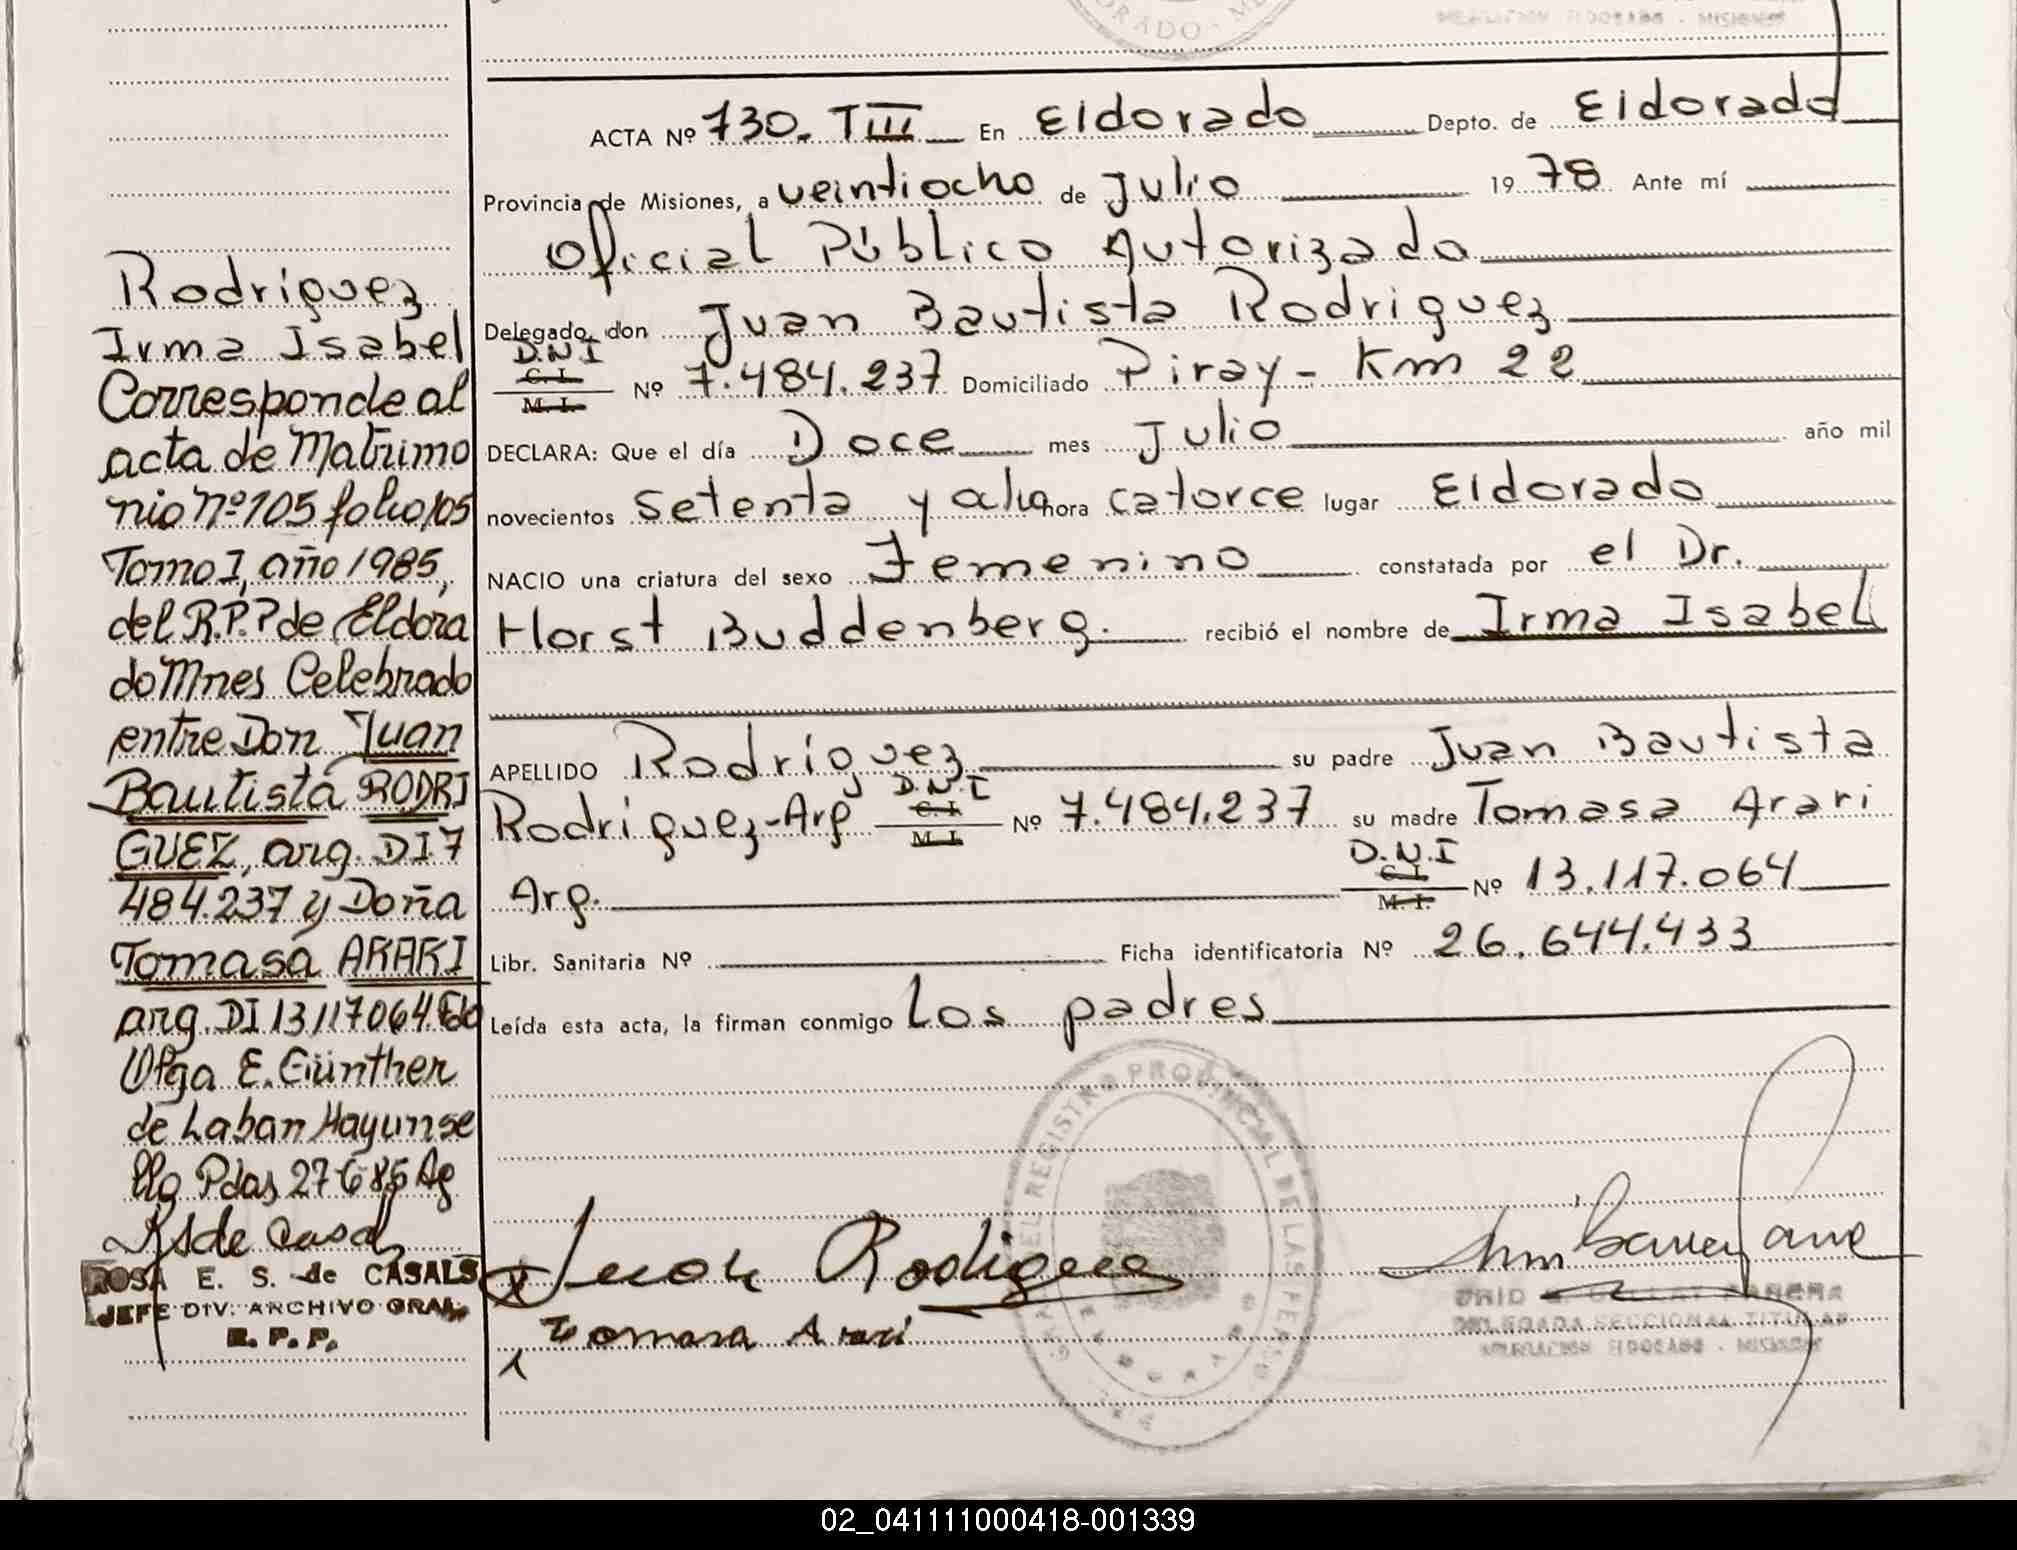 ORADO - M
DELEGACION ELDORADO - MISIONES
ACTA Nº 730. TIII En Eldorado Depto. de Eldorado
Provincia de Misiones, a veintiocho de Julio 1978 Ante mí
Oficial Público Autorizado
Delegado, don Juan Bautista Rodriguez
D.N.I
C. I.
M. I. Nº 7.484.237 Domiciliado Piray - Km 22
DECLARA: Que el día Doce mes Julio año mil
novecientos setenta y ocho hora catorce lugar Eldorado
NACIO una criatura del sexo Femenino constatada por el Dr.
Horst Buddenberg. recibió el nombre de Irma Isabel
APELLIDO Rodríguez su padre Juan Bautista
Rodriguez-Arg D.N.I C.I. M.I. Nº 7.484.237 su madre Tomasa Arari
Arg. D.N.I C.I. M.I. Nº 13.117.064
Libr. Sanitaria Nº Ficha identificatoria Nº 26.644.433
Leída esta acta, la firman conmigo Los padres
Rodríguez
Irma Isabel
Corresponde al
acta de Matrimo
nio Nº 105 folio 105
Tomo I, año 1985,
del R.P.P de Eldora
do Mnes Celebrado
entre Don Juan
Bautista RODRI
GUEZ, arg. DI 7
484.237 y Doña
Tomasa ARARI
arg. DI 13117064. Fdo
Olga E. Günther
de Laban Hay un se
llo Pdas 27 6 85 Ag
ROSA E. S. de CASALS
JEFE DIV. ARCHIVO GRAL.
R. P. P.
REGISTRO PROVINCIAL DE LAS PERSO
Juan Rodigue
Tomasa Arari
DELEGADA SECCIONAL TITULAR
DELEGACION ELDORADO - MISIONES
02_041111000418-001339